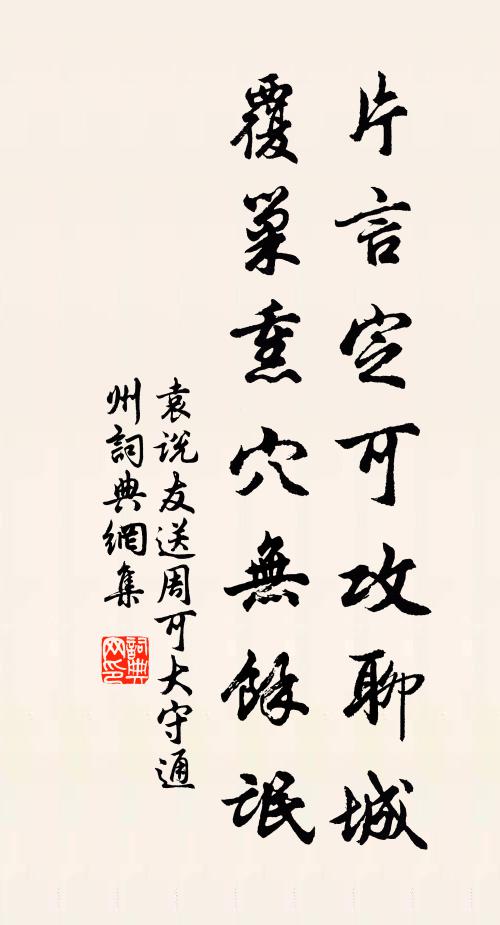 片言定可攻聊城
覆巢熏穴無餘氓
袁说友送周可大守通
州詞典網集
詞典网印